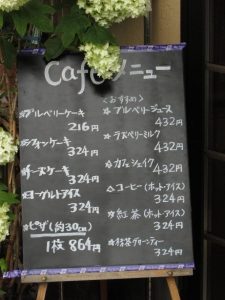 Cafeメニュー
<おすすめ>
☆ブルベリーケーキ
216円
☆シフォンケーキ
324円
☆チーズケーキ
324円
☆ヨーグルトアイス
324円
☆ピザ(約30cm)
1枚 864円
☆ブルベリージュース
432円
☆ラズベリーミルク
432円
☆カフェシェイク
432円
☆コーヒー(ホット・アイス)
324円
☆紅茶(ホット・アイス)
324円
324円